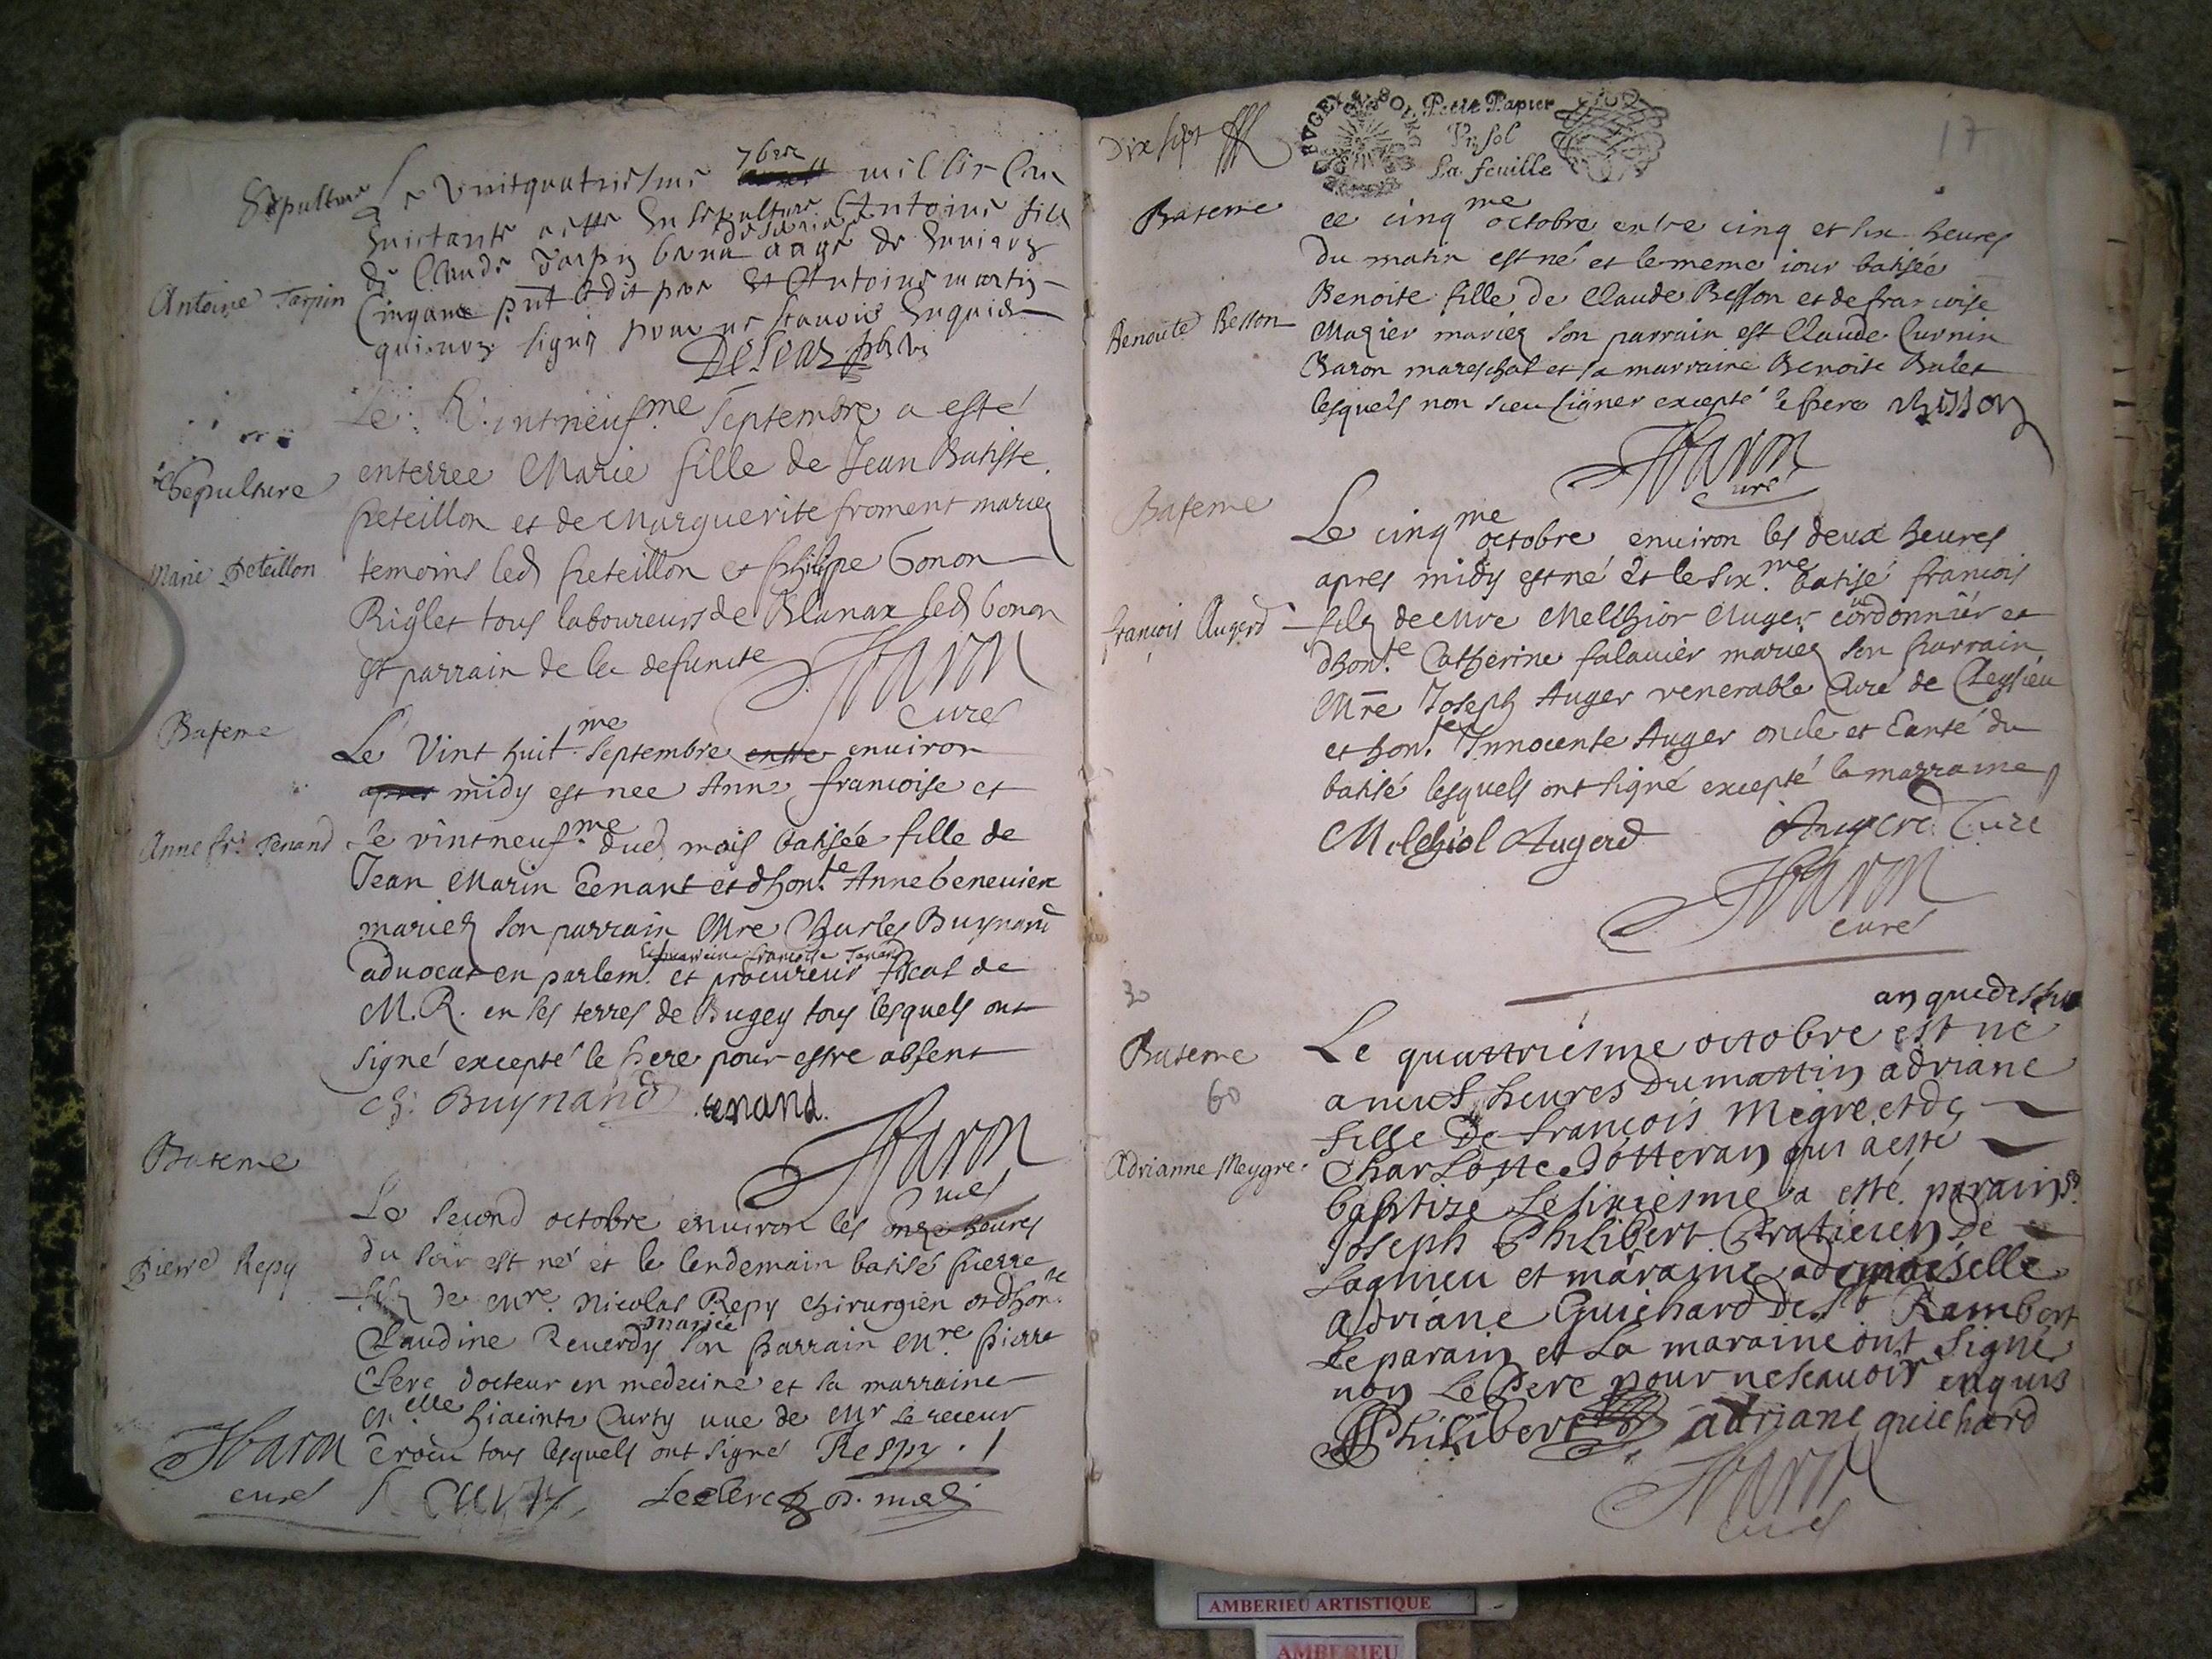 Sepulture
Le vintquatriesme 7bre mil six cen
Antoine fils
de Claude Tarpin aagé de
Antoine Tarpin
et Antoine martin
signé pour ne scavoir enquis
Sepulture
Le vintneufme Septembre a esté
enterree Marie fille de Jean Batiste
peteillon et de Marguerite froment mariez
Marie Peteillon
temoins led peteillon et philipe bonon
Riglet tous laboureurs de Blanax led bonon
est parrain de la defuncte
Jbaron
curé
Bateme
Le Vint huitme Septembre entre environ
apres midy est nee Anne francoise et
Anne fr. Tenand
le vintneufme dud mois batisée fille de
Jean Marin Tenant et dhonte Anne benevier
mariez son parrain Mre Charles Buynand
et sa marraine francoise Tenand
advocat en parlemt et procureur fiscal de
M.R. en ses terres de Bugey tous lesquels ont
signé excepté le pere pour estre absent
ch. Buynand tenand.
Jbaron
curé
Bateme
Le second octobre environ les onze heures
Pierre Repy
du soir est né et le lendemain batisé pierre
filz de Mre Nicolas Repy chirurgien et dhonte
mariée
Claudine Reverdy son parrain Mre pierre
Clerc docteur en medecine et sa marraine
Melle hiacinte Curty de Mr le receveur
Trocu tous lesquels ont signé Respy
Jbaron
curé
Curty
Leclerc d. med.
Dix sept
BUGEY
Petit Papier
Un Sol
La feuille
17
Bateme
ce cinqme octobre entre cinq et six heures
du matin est né et le meme iour batisée
Benoite fille de Claude Besson et de francoise
Benoite Besson
Mazier mariez son parrain est Claude Curnin
Baron mareschal et sa marraine Benoite Bulet
lesquels non sceu signer excepté le pere Besson
Jbaron
curé
Bateme
Le cinqme octobre environ les deux heures
apres midy est né et le sixme batisé francois
françois Augerd
filz de Mre Melchior Auger cordonnier et
dhonte Catherine falavier mariez son parrain
Mre Joseph Auger venerable Curé de Cleyssieu
et honte Innocente Auger oncle et tante du
batisé lesquels ont signé excepté la marraine
Melchiol Augerd Augerd Curé
Jbaron
curé
30
an que dessus
Bateme
60
Le quattriesme octobre est né
a neuf heures du mattin adriane
fille De francois Megre et de
Adrianne Meygre
Charlotte Dotteran qui a esté
baptizé le sixiesme a esté parain sr
Joseph Philibert Praticien De
Lagnieu et maraine ademoiselle
Adriane Guichard de St Rambert
Le parain et la maraine ont signé
non le Pere pour ne scavoir enquis
JPhilibert adriane guichard
Jbaron
curé
AMBERIEU ARTISTIQUE
AMBERIEU